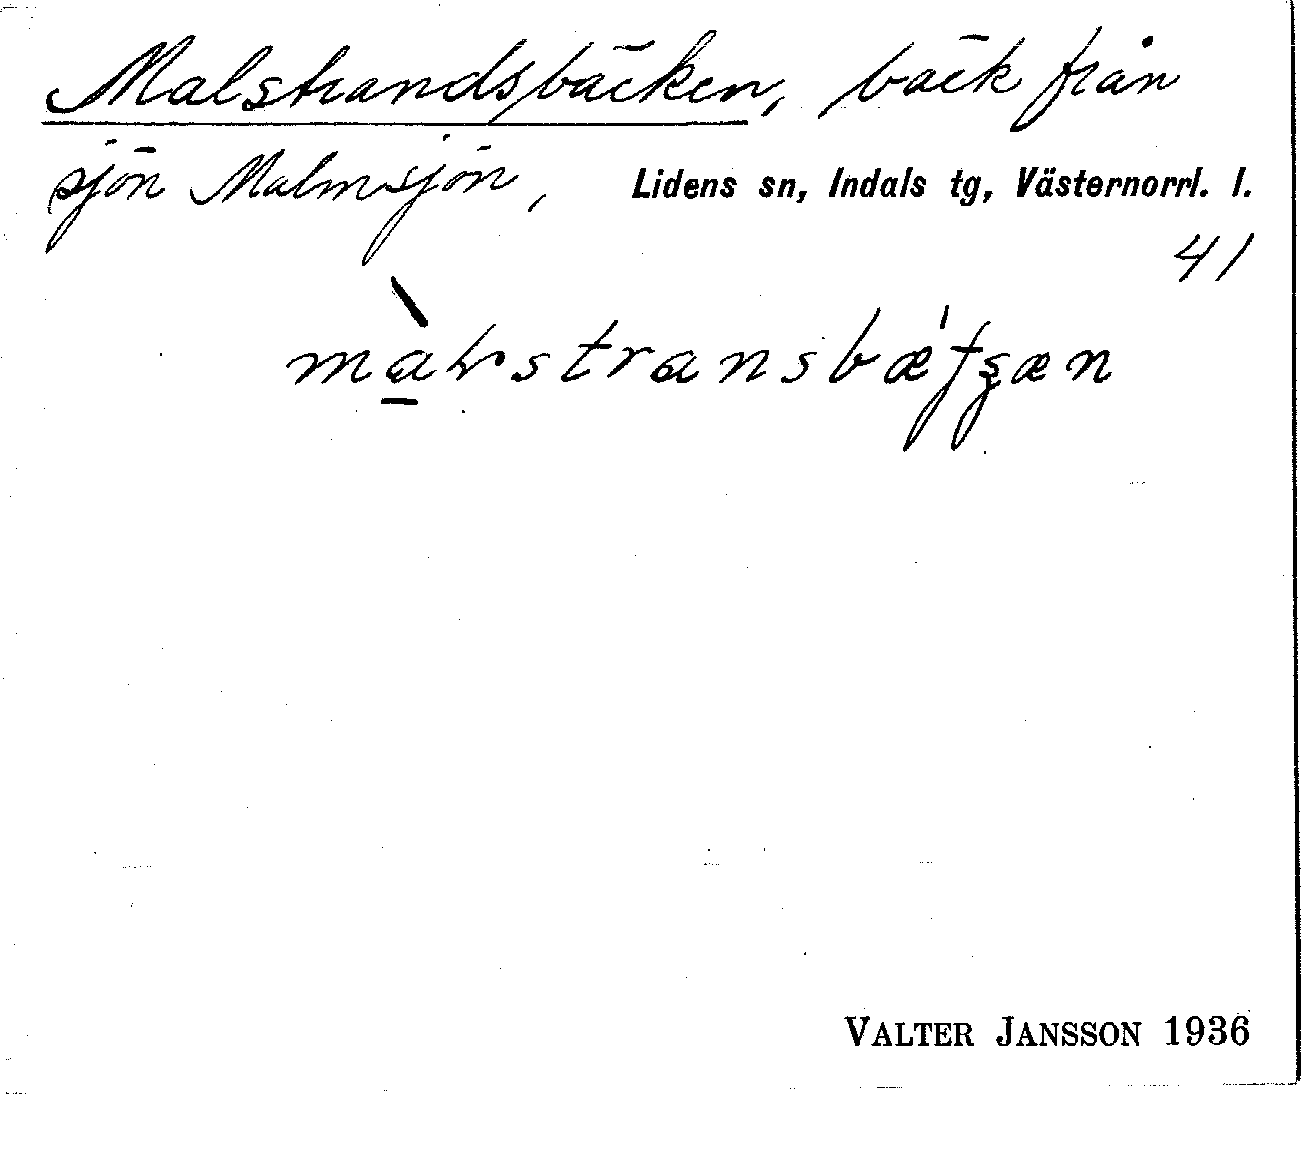 Malstrandsbäcken, bäck från
sjön Malmsjön, Lidens sn, Indals tg, Västernorrl. l.
41
VALTER JANSSON 1936